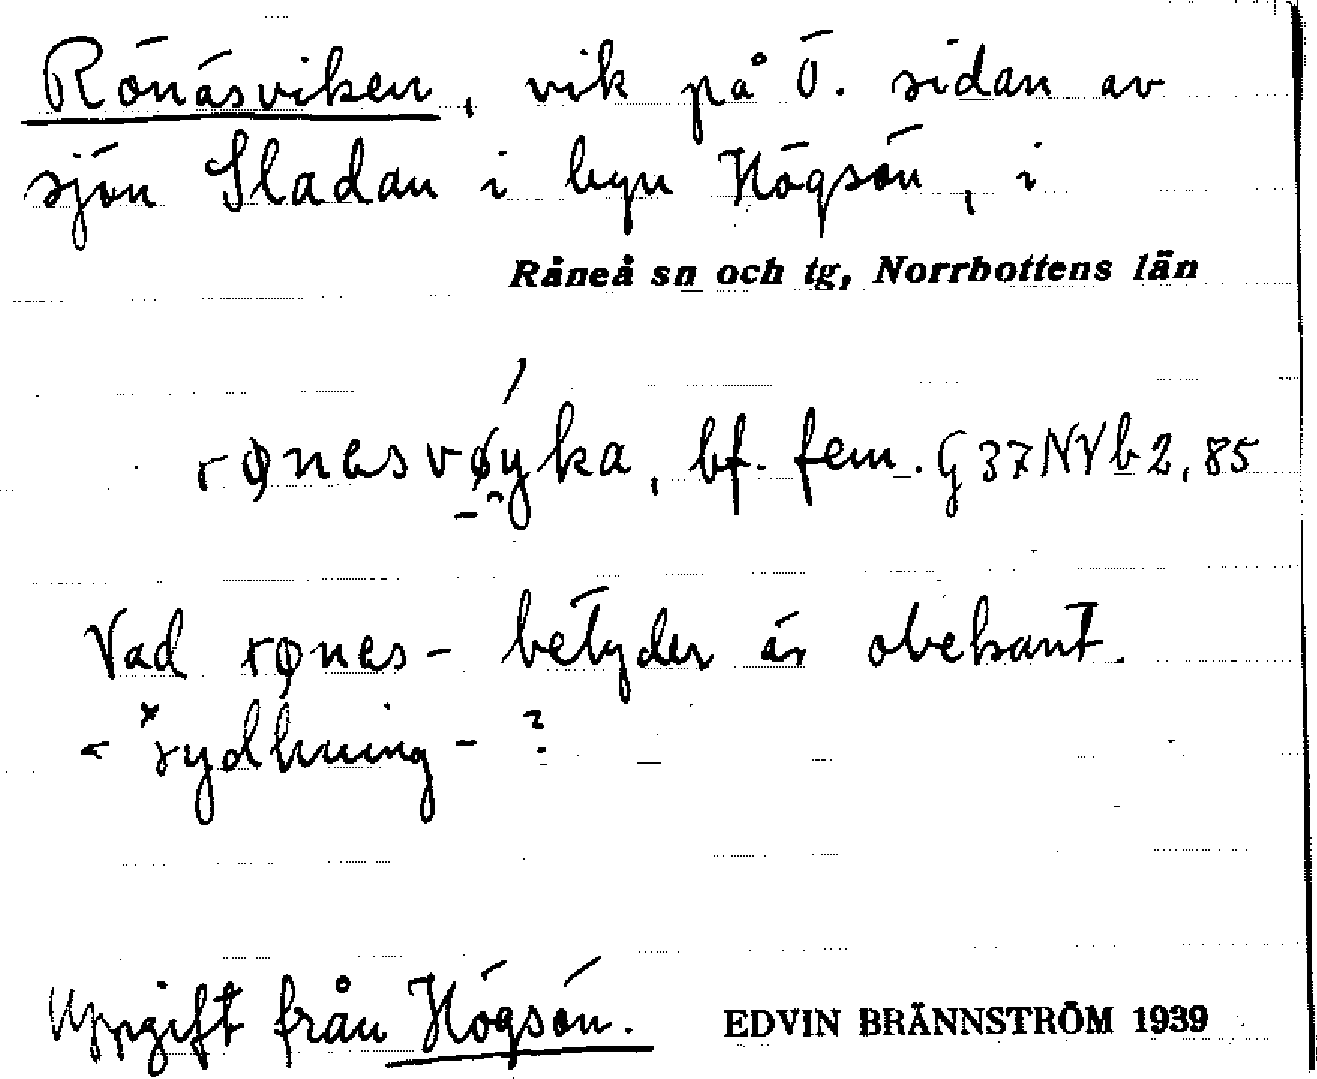 Rönäsviken, vik på Ö. sidan av
sjön Sladan i byn Högsön, i
Råneå sn och tg, Norrbottens län
rønesvøyka, bf. fem. G37NVb2,85
Vad rønes- betyder är obekant.
Uppgift från Högsön.
EDVIN BRÄNNSTRÖM 1939